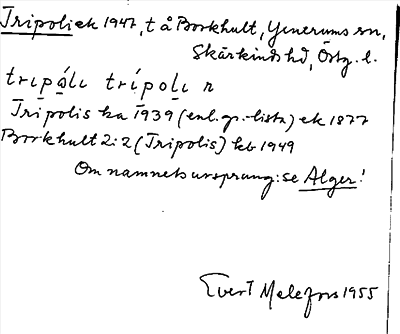 Tripoli ek 1947, t å Borkhult, Yxnerums sn,
Skärkinds hd, Östg. l.
trıpáli trípolı n
Tripolis ka 1939 (enl. gp.-lista) ek 1877
Borkhult 2:2 (Tripolis) kb 1949
Om namnets ursprung: se Alger!
Evert Melefors 1955